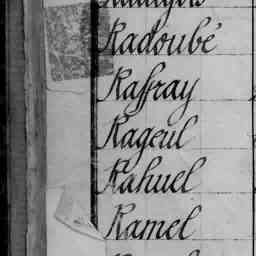 Radoubé
Raffray
Rageul
Rahuel
Ramel